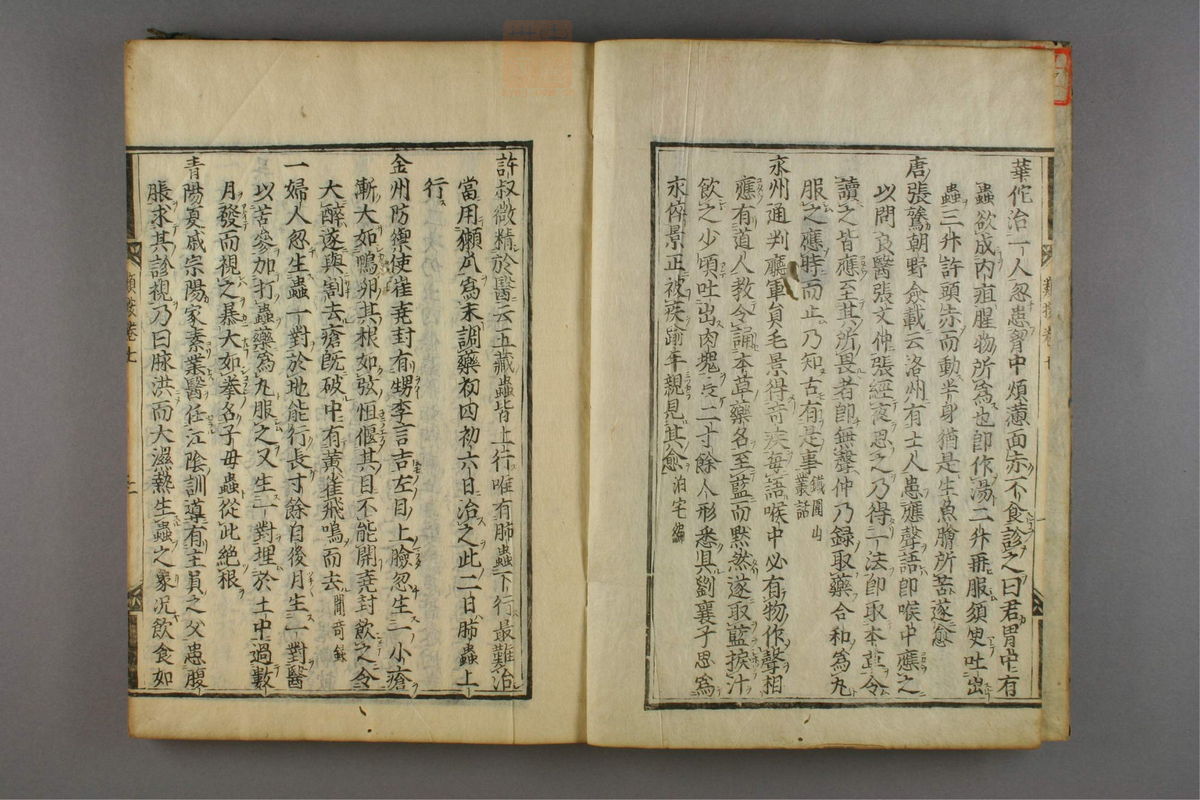 華佗治一人忽患胷中煩懣面赤不食診之曰君胃中有
蟲欲成內疽腥物所爲也卽作湯二升再服須臾吐出
蟲三升許頭赤而動半身猶是生魚膾所苦遂愈
唐張鷟朝野僉載云洛州有士人患應聲語卽喉中應之
以問良醫張文仲張經夜思之乃得一法卽取本草令
讀之皆應至其所畏者卽無聲仲乃録取藥合和爲丸
服之應時而止乃知古有是事鐵圍山叢話
永州通判廳軍員毛景得奇疾每語喉中必有物作聲相
應有道人教令誦本草藥名至藍而黙然遂取藍捩汁
飲之少頃吐出肉塊長二寸餘人形悉具劉襄子思爲
永倅景正被疾踰年親見其愈泊宅編
許叔微精於醫云五藏蟲皆上行唯有肺蟲下行最難治
當用獺爪爲末調藥初四初六日治之此二日肺蟲上
行
金州防禦使崔堯封有甥李言吉左目上瞼忽生一小瘡
漸大如鴨卵其根如弦恒偃其目不能開堯封飲之令
大醉遂與割去瘡既破中有黃雀飛鳴而去聞奇録
一婦人忽生蟲一對於地能行長寸餘自後月生一對醫
以苦參加打蟲藥爲丸服之又生一對埋於土中過數
月發而視之暴大如拳名子母蟲從此絕根
青陽夏戚宗陽家素業醫任江陰訓導有主員之父患腹
脹求其診視乃曰脉洪而大濕熱生蟲之象況飲食如